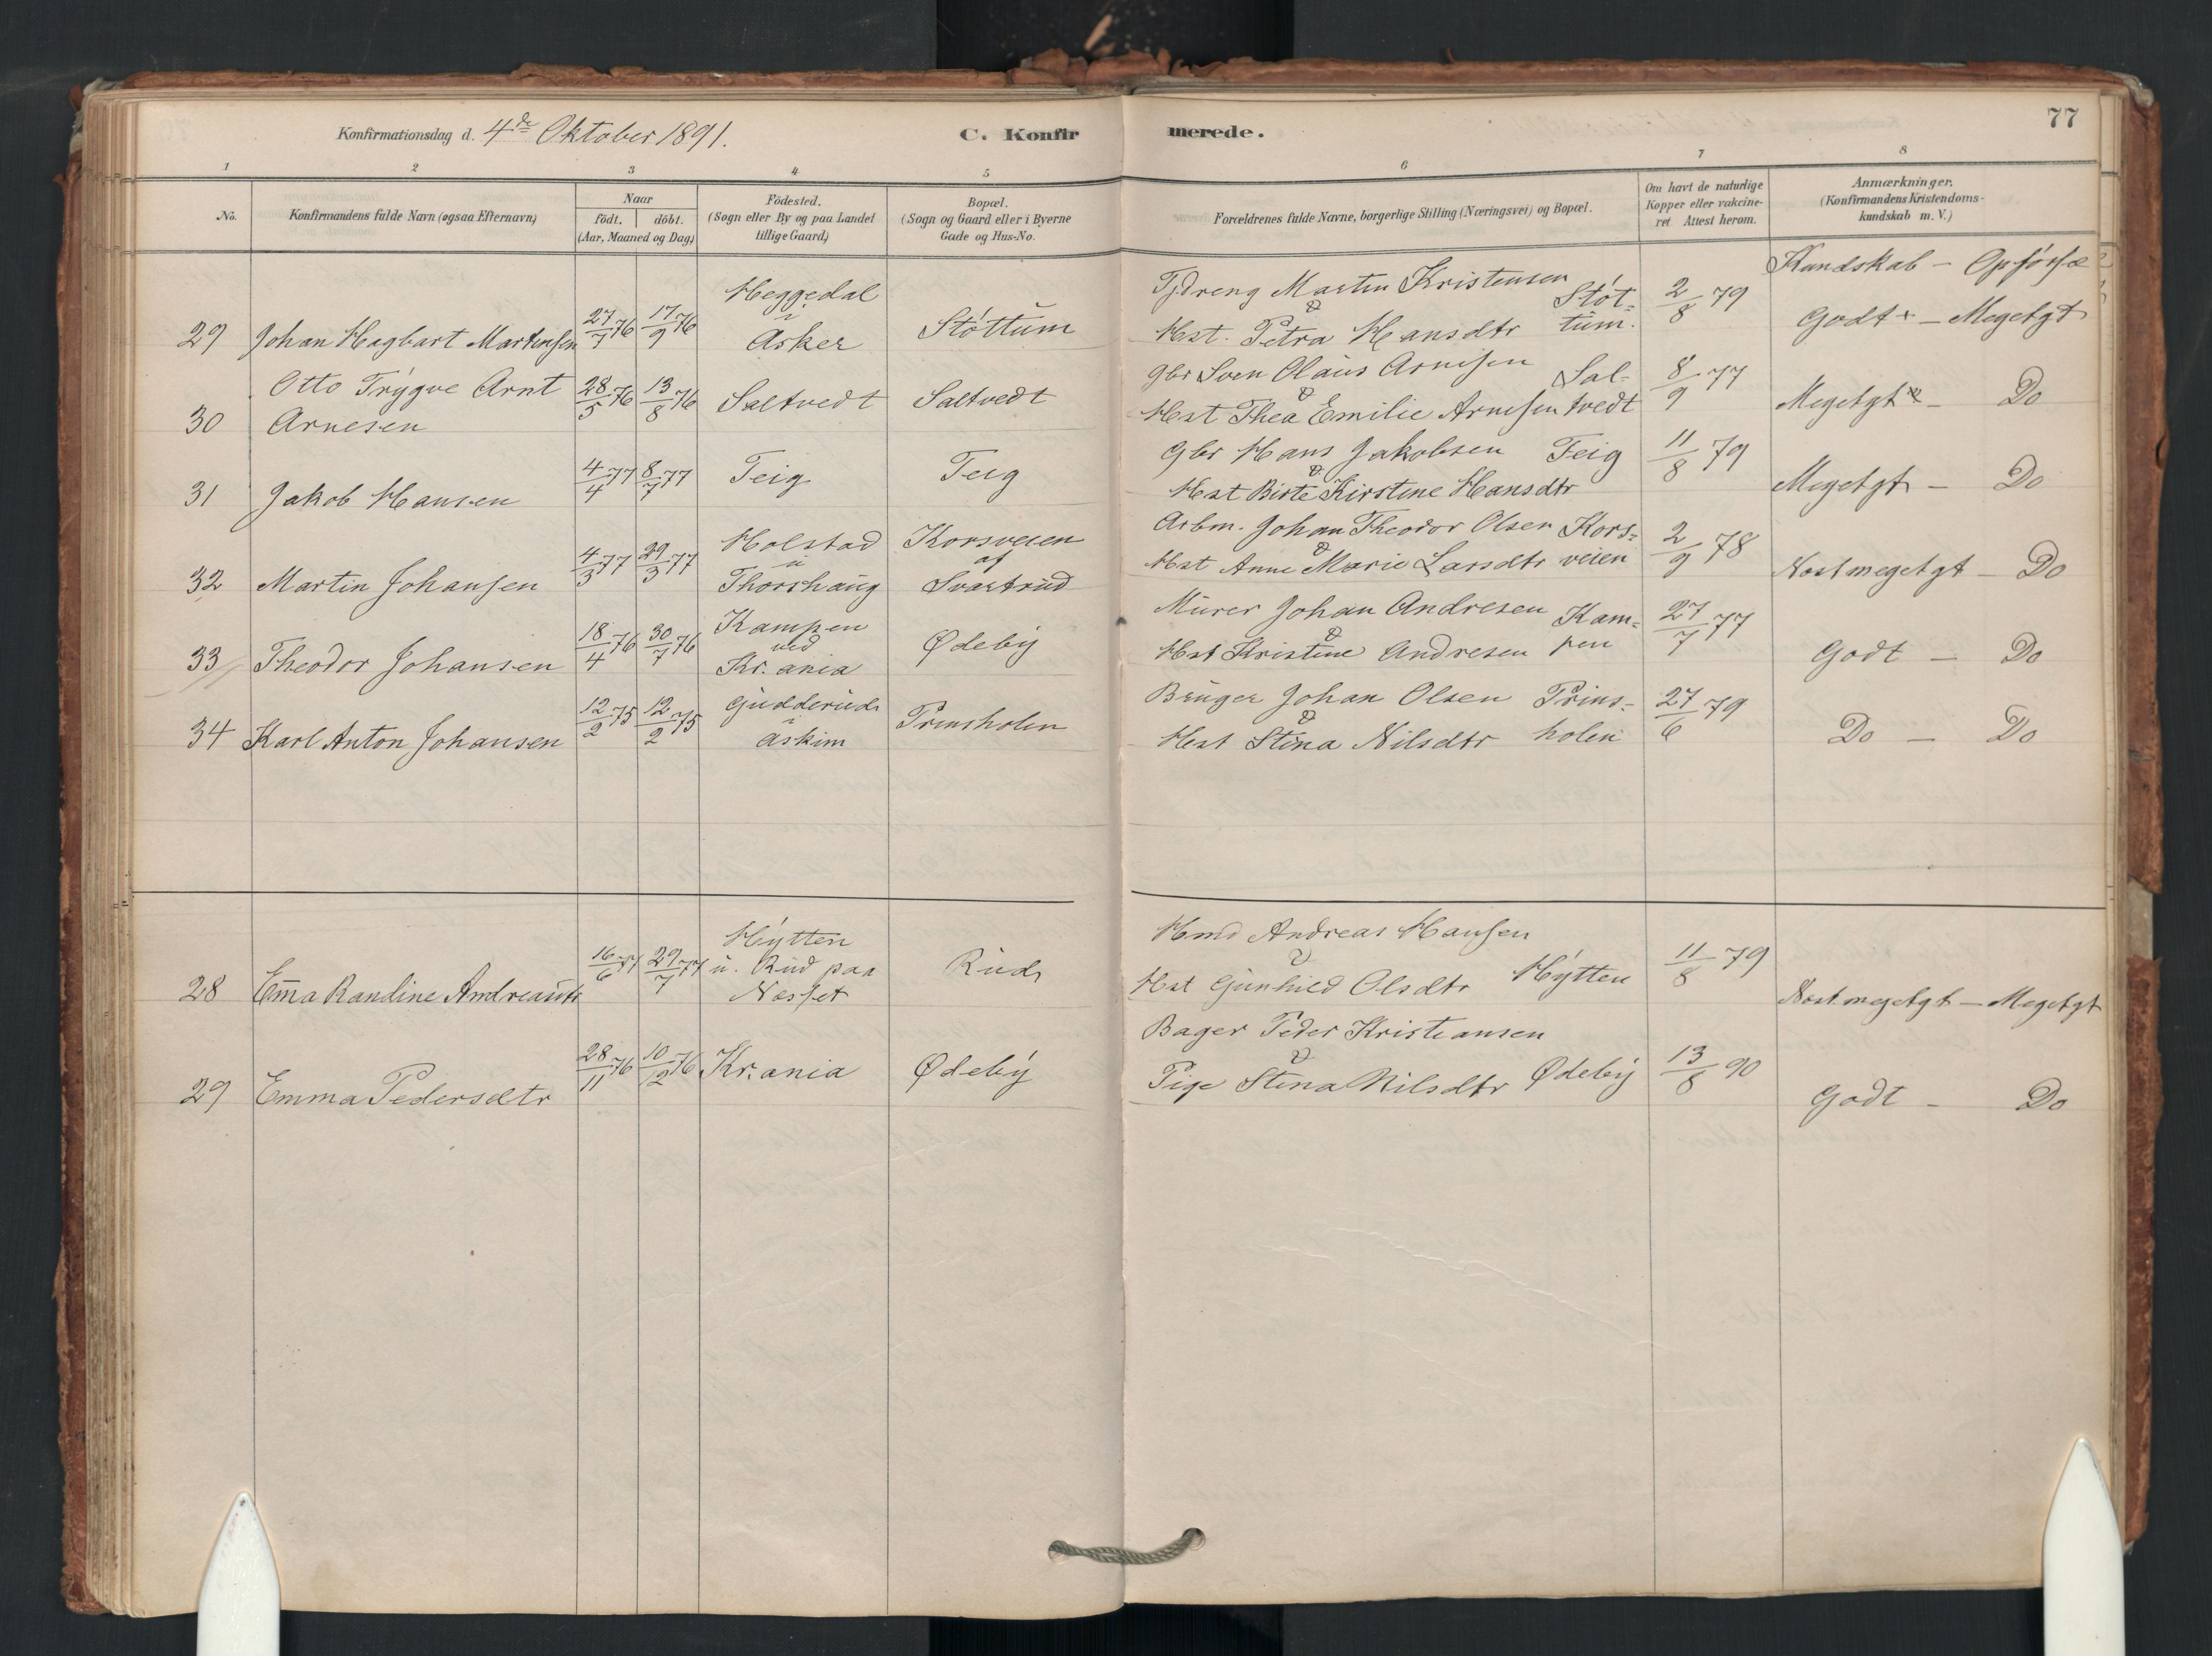 Konfirmationsdag d. 4de Oktober 1891.
C. Konfirmerede.
77
1 2 3 4 5 6 7 8
No.
Konfirmandens fulde Navn (ogsaa Efternavn)
Naar
födt. döbt.
(Aar, Maaned og Dag)
Födested.
(Sogn eller By og paa Landet
tillige Gaard)
Bopæl.
(Sogn og Gaard eller i Byerne
Gade og Hus-No.
Forældrenes fulde Navne, borgerlige Stilling (Næringsvei) og Bopæl.
Om havt de naturlige
Kopper eller vakcine-
ret Attest herom.
Anmærkninger.
(Konfirmandens Kristendoms-
kundskab m. V.)
Kundskab – Opførsel
29 Johan Hagbart Martinsen
27/7 76 17/9 76
Heggedal
i
Asker
Støttum
Tjdreng Martin Kristensen
&
Hst. Petra Hansdtr
Støt-
tum.
2/8 79
Godt + – Megetgt
Otto Trygve Arnt
30 Arnesen
28/5 76 13/8 76
Saltvedt
Saltvedt
Gbr Sven Olaus Arnesen Sal-
&
Hst Thea Emilie Arnesen tvedt
8/9 77
Megetgt – Do
31 Jakob Hansen
4/4 77 8/7 77
Teig
Teig
Gbr Hans Jakobsen Teig
&
Hst Birte Kirstine Hansdtr
11/8 79
Megetgt – Do
32 Martin Johansen
4/3 77 29/3 77
Holstad
u
Thorshaug
Korsveien
af
Svartrud
Arbm. Johan Theodor Olsen Kors-
&
Hst Anne Marie Larsdtr veien
2/9 78
Næstmegetgt – Do
33 Theodor Johansen
18/4 76 30/7 76
Kampen
ved
Kr.ania
Ødeby
Murer Johan Andresen Kam-
&
Hst Kristine Andresen pen
27/7 77
Godt – Do
34 Karl Anton Johansen
12/2 75 12/2 75
Gudderud
i
Askim
Prinsholen
Bruger Johan Olsen Prins-
&
Hst Stina Nilsdtr holen
27/6 79
Do – Do
28 Emma Randine Andreasdtr
16/6 77 29/7 77
Hytten
u. Rud paa
Næsset
Rud
Hmd Andreas Hansen
&
Hst Gunhild Olsdtr Hytten
11/8 79
Næst.megetgt – Megetgt
29 Emma Pedersdtr
28/11 76 10/12 76
Kr.ania
Ødeby
Bager Peder Kristiansen
&
Pige Stina Nilsdtr Ødeby
13/8 90
Godt – Do